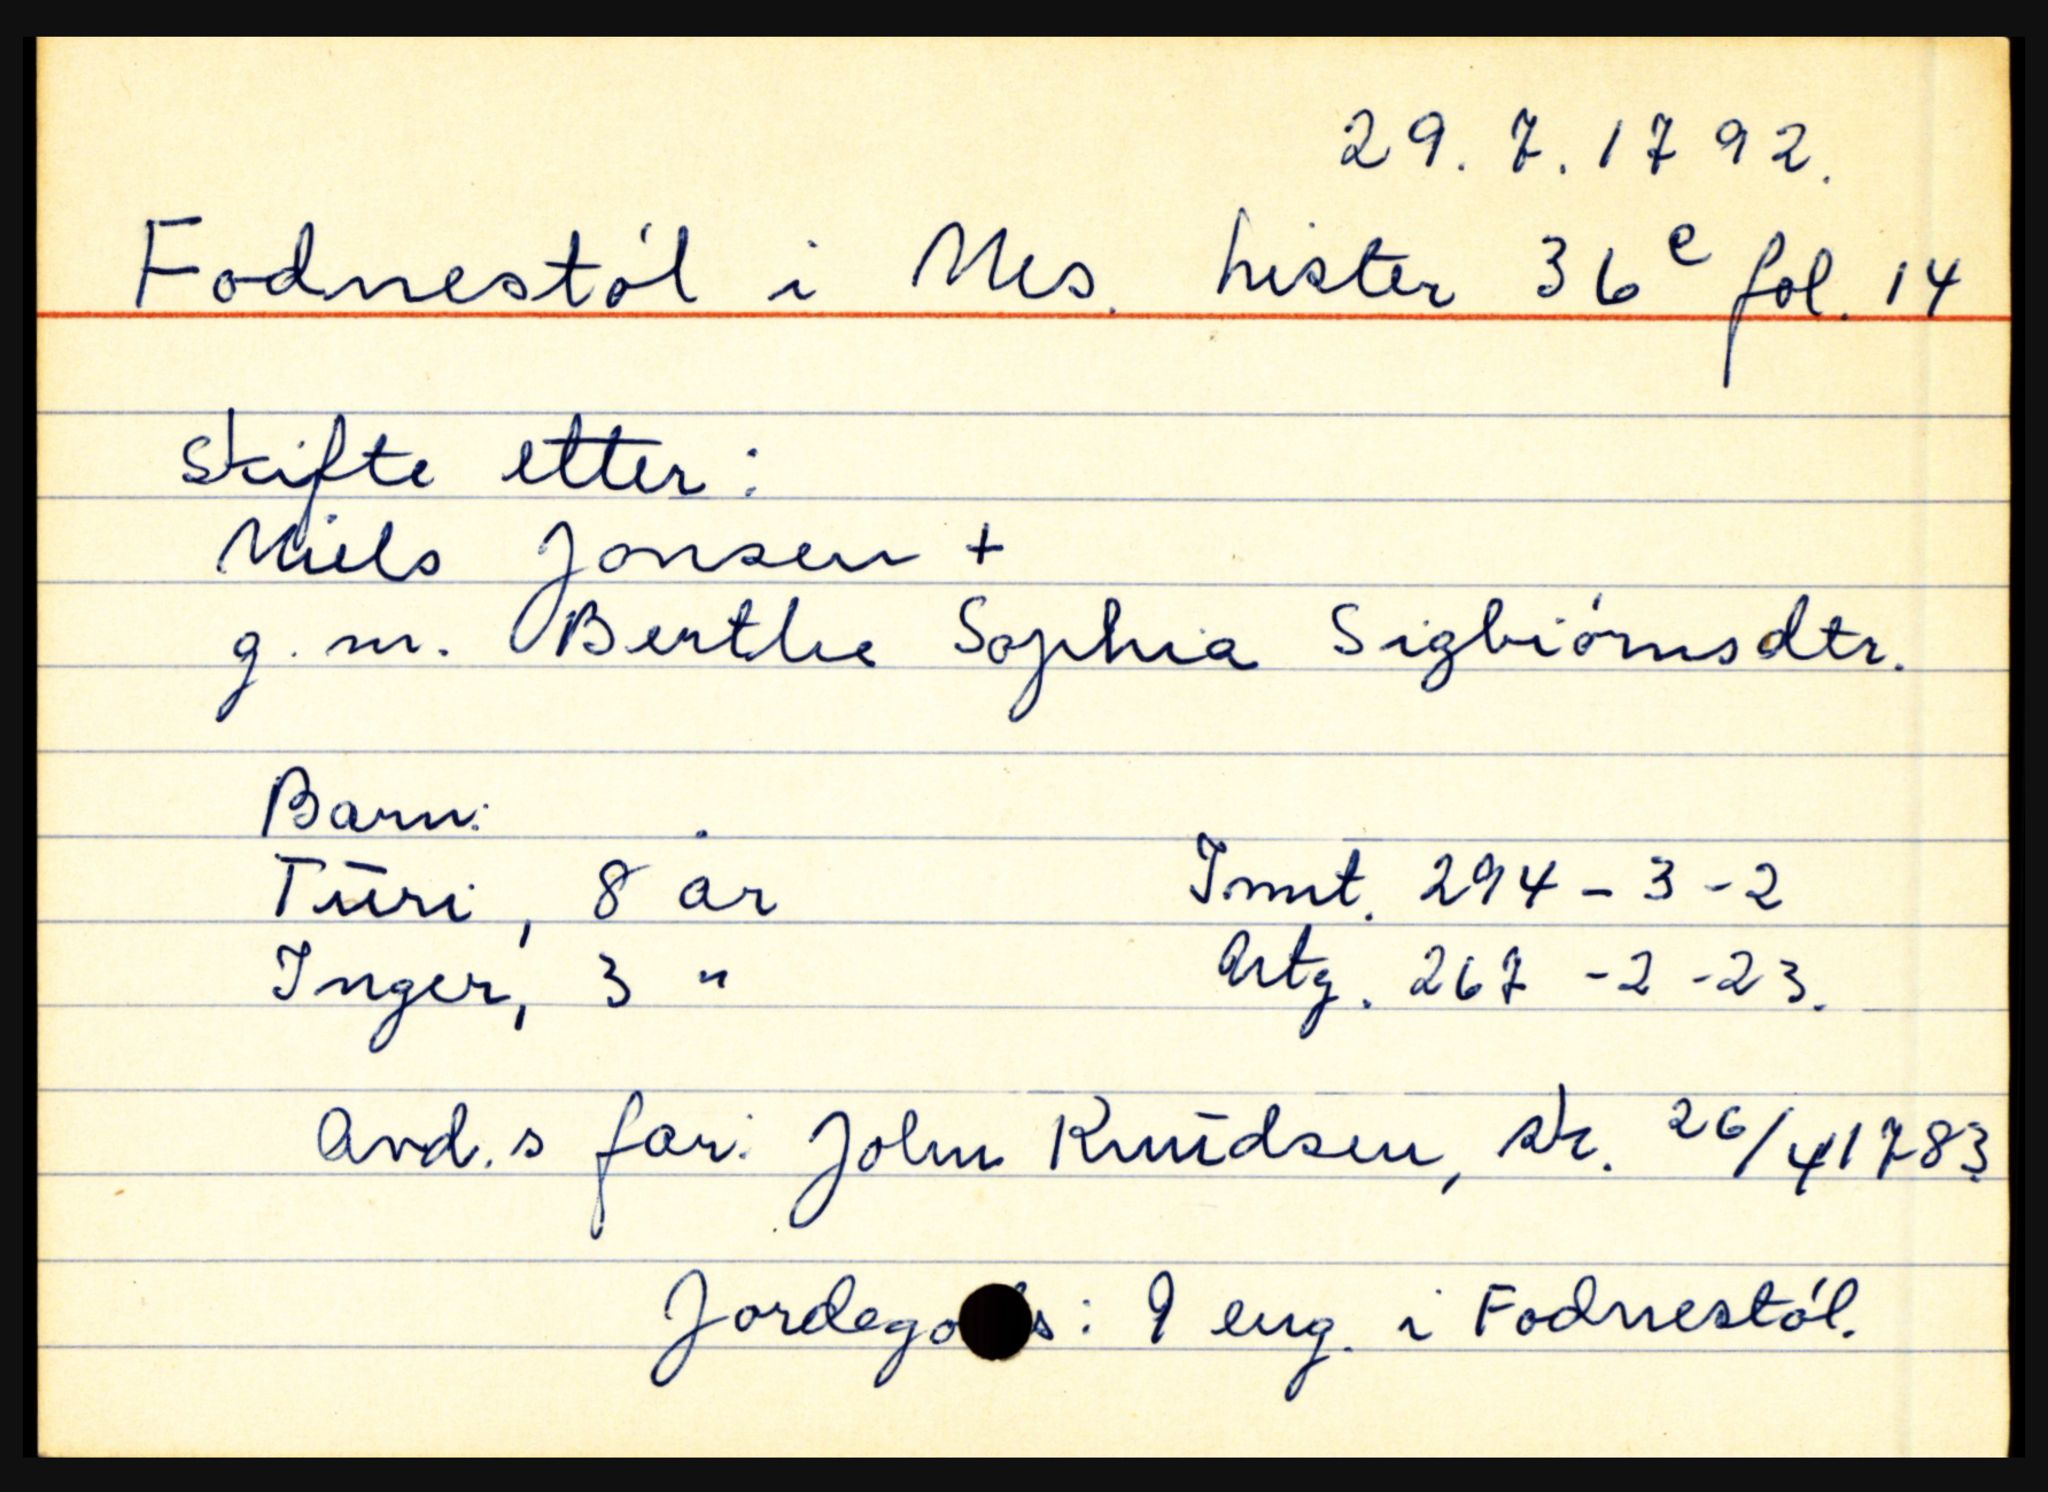 29.7.1792.
Fodnestól i Nes. Lister 36e fol. 14
Skifte etter:
Niels Jonsen +
g. m. Berthe Sophia Sigbiórnsdtr.
Barn:
Tūri, 8 år
Innt. 294-3-2
Inger, 3 "
Artg. 267-2-23.
Avd.s far: John Knūdsen, sk. 26/4 1783.
Jordegods: 9 eng. i Fodnestól.